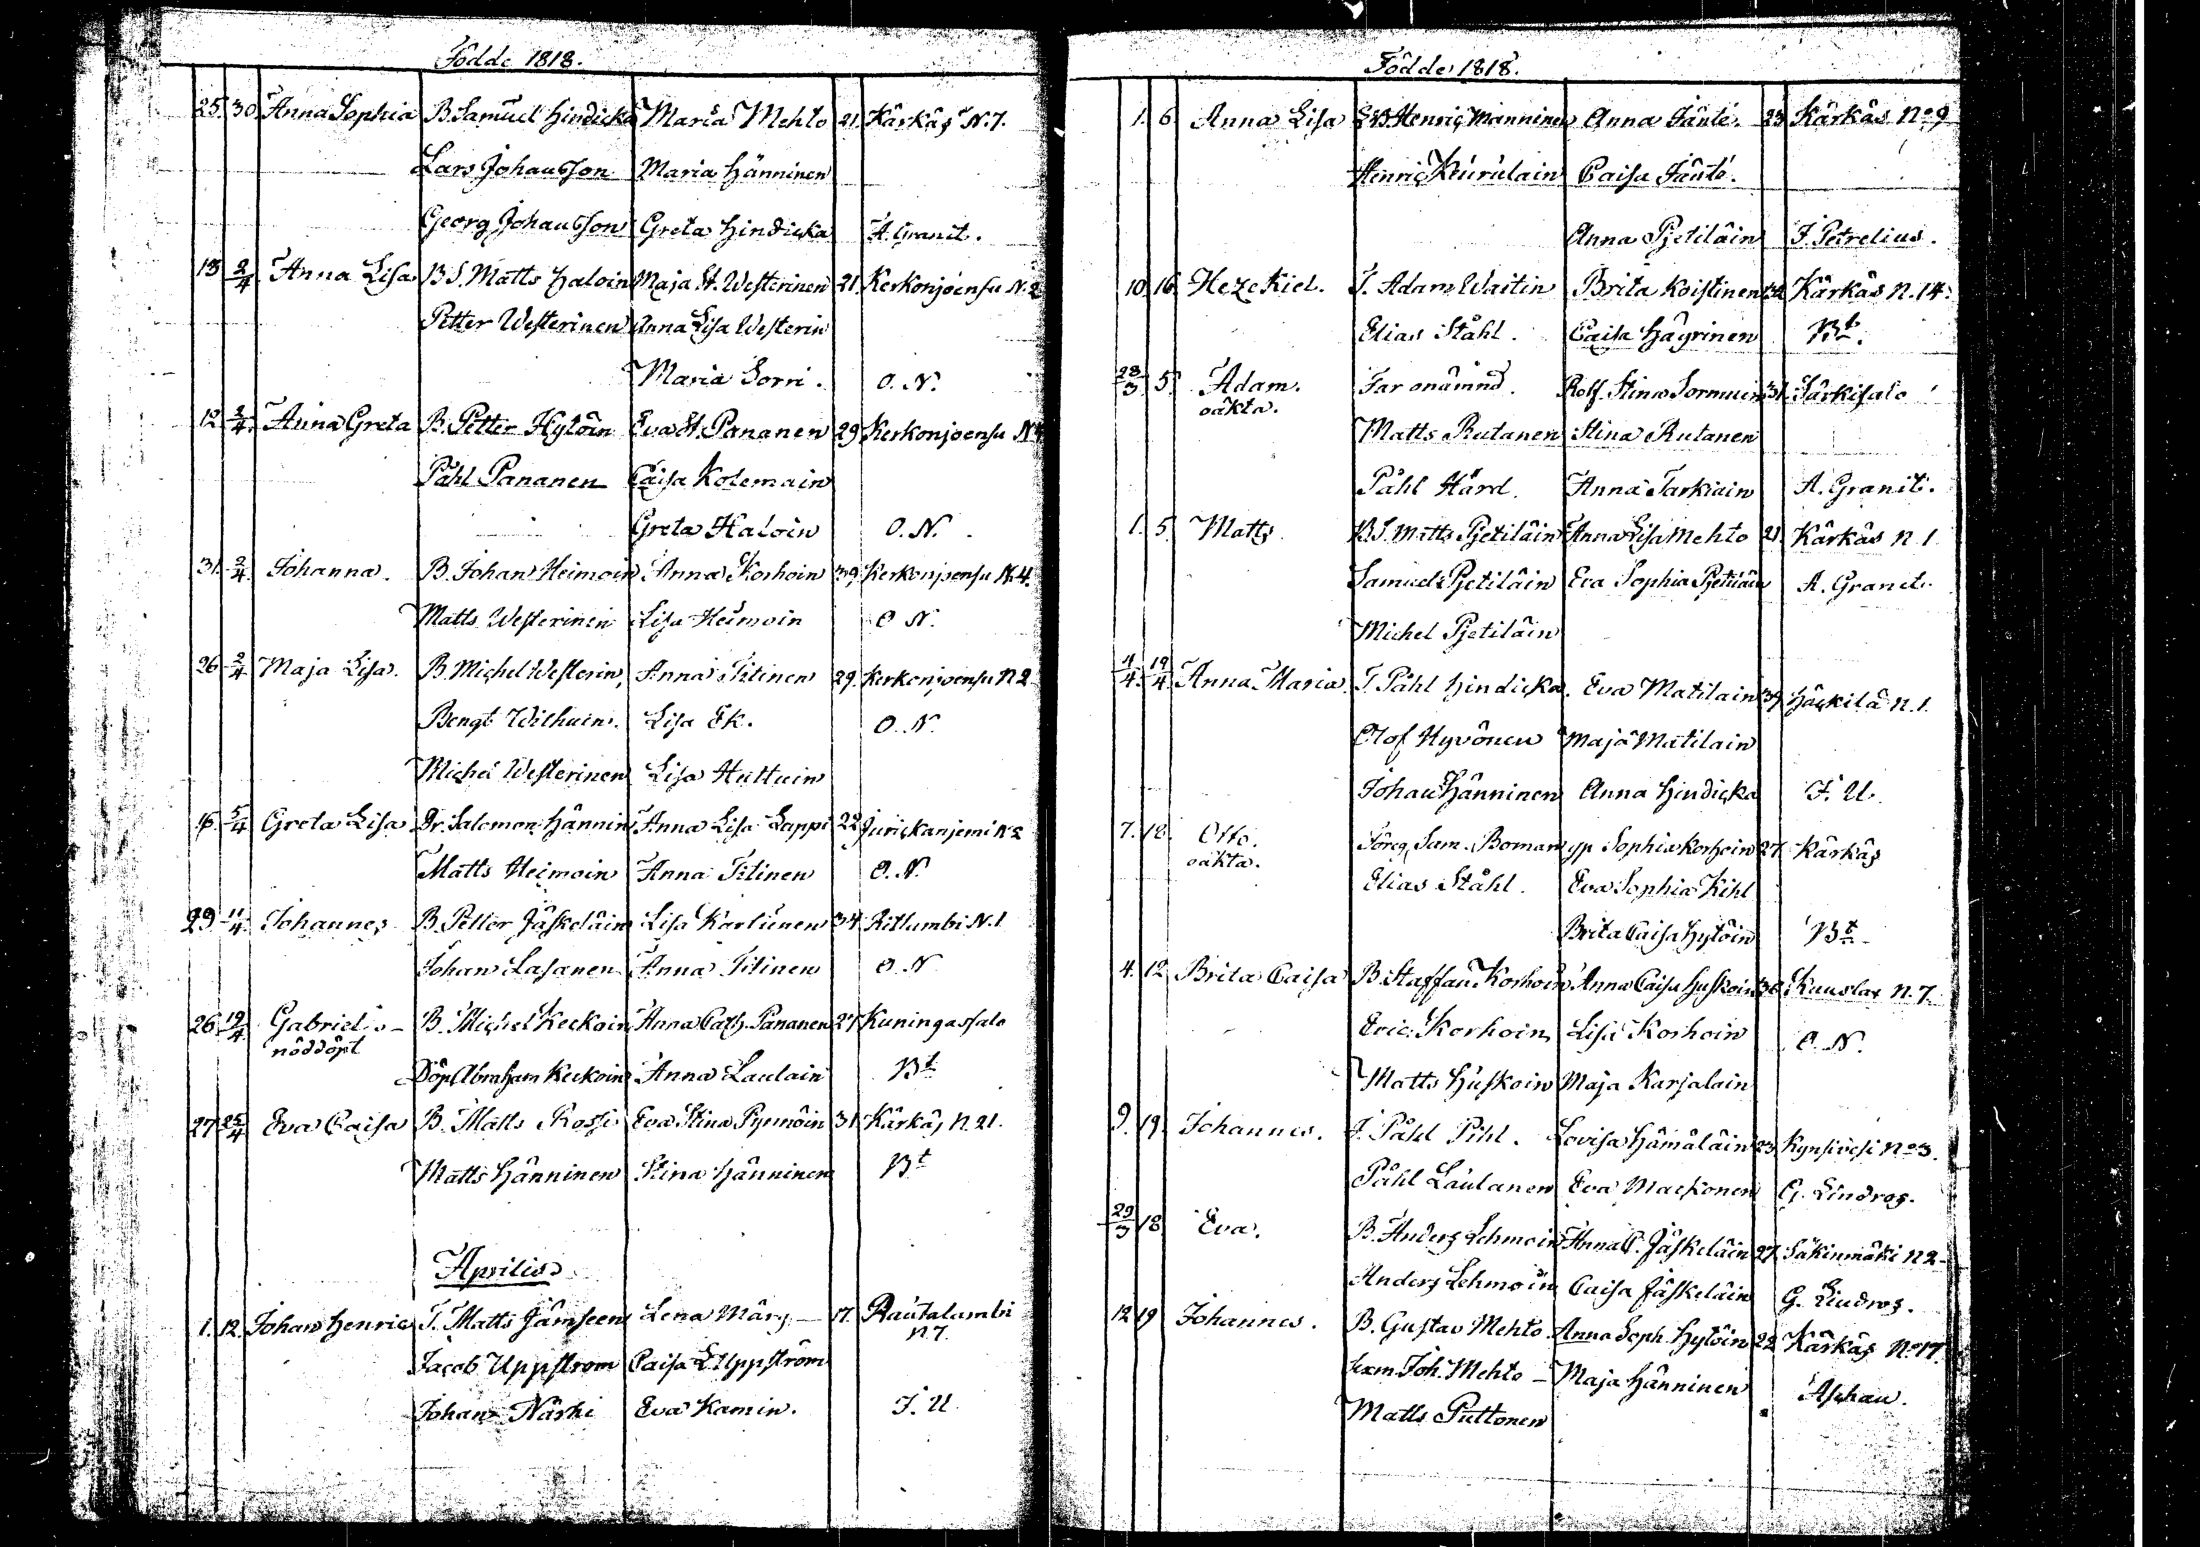 Födde 1818.
25. 30. Anna Sophia B. Samuel Hindicka Maria Mehto 21. Kärkäs N. 7.
Lars Johansson Maria Hänninen
Georg Johansson Greta Hindicka A. Granit.
13 2/4 Anna Lisa B. S. Matts Haloin Maja St. Westerinen 21. Kerkonjoensu N. 2
Petter Westerinen Anna Lisa Westerin
Maria Sorri. O. N.
12 2/4 Anna Greta B. Petter Hytöin Eva St. Pananen 29 Kerkonjoensu N 4
Påhl Pananen Caisa Kolemain
Greta Haloin O. N.
31. 2/4 Johanna. B. Johan Heimoin Anna Korhoin 39. Kerkonjoensu N. 4.
Matts Westerinen Lisa Heimoin O N.
26 2/4 Maja Lisa. B. Michel Westerin, Anna Titinen 29. Kerkonjoensu N 2
Bengt Wilhuin. Lisa Ek. O. N.
Michel Westerinen Lisa Huttuin
16 5/4 Greta Lisa Dr. Salomon Hännin Anna Lisa Lappi 22 Jurickanjemi N 2
Matts Heimoin Anna Titinen O. N.
29 11/4 Johannes B. Petter Jäskeläin Lisa Karlunen 34. Kitlumbi N. 1
Johan Lasanen Anna Titinen O. N
26 19/4 Gabriel B. Michel Keckoin Anna Cath. Pananen 27. Kuningassalo
nöddöpt
Döp. Abraham Keckoin Anna Laulain Bt
27 25/4 Eva Caisa B. Matts Rossi Eva Stina Pynnöin 31. Kärkäs N. 21.
Matts Hänninen Stina Hänninen Bt
Aprilis
1. 12. Johan Henric T. Matts Jämseen Lena Märs 17. Rautalambi
N 7.
Jacob Uppström Caisa L. Uppström
Johan Närhi Eva Kamin. J. U
Födde 1818.
1. 6 Anna Lisa Henric Manninen Anna Jänte. 23 Kärkäs No 9
Henric Kiurulain Caisa Jänte.
Anna Pjetiläin J. Petrelius.
10. 16 Hezekiel. T. Adam Waitin Brita Koistinen Kärkäs N. 14.
Elias Ståhl. Caisa Häyrinen Bt.
28/3 5. Adam. Far onämnd. Stina Sormuin 31. Särkisalo
oäkta.
Matts Rutanen Stina Rutanen
Påhl Hård. Anna Tarkiain A. Granit.
1. 5. Matts B. S. Matts Pjetiläin Anna Lisa Mehto 21. Kärkäs N 1
Samuel Pjetiläin Eva Sophia Pjetiläin A. Granit.
Michel Pjetiläin
4/4 12/4 Anna Maria T. Påhl Hindicka. Eva Matilain 37 Häckilä N. 1.
Olof Hyvönen Maja Matilain
Johan Hänninen Anna Hindicka J. U.
7. 18. Otto. Sam. Boman Sophia Korhoin 27. Kärkäs
oäkta.
Elias Ståhl. Eva Sophia Kihl
Brita Caisa Hytöin Bt
4. 12 Brita Caisa B. Staffan Korhoin Anna Caisa Huskoin 38. Kuuslax N. 7.
Eric Korhoin Lisa Korhoin O. N.
Matts Huskoin Maja Karjalain
9. 19. Johannes. T. Påhl Pihl. Lovisa Hämäläin 23. Kynsivesi No 3.
Påhl Laulanen Eva Mackonen G. Lindros.
29/3 18 Eva. B. Anders Lehmoin Anna C. Jäskeläin 27. Säkinmäki N 2
Anders Lehmoin Caisa Jäskeläin G. Lindros.
12 19 Johannes. B. Gustav Mehto Anna Soph. Hytöin 22 Kärkäs No 17.
Sexm. Joh. Mehto Maja Hänninen Aschan.
Matts Puttonen